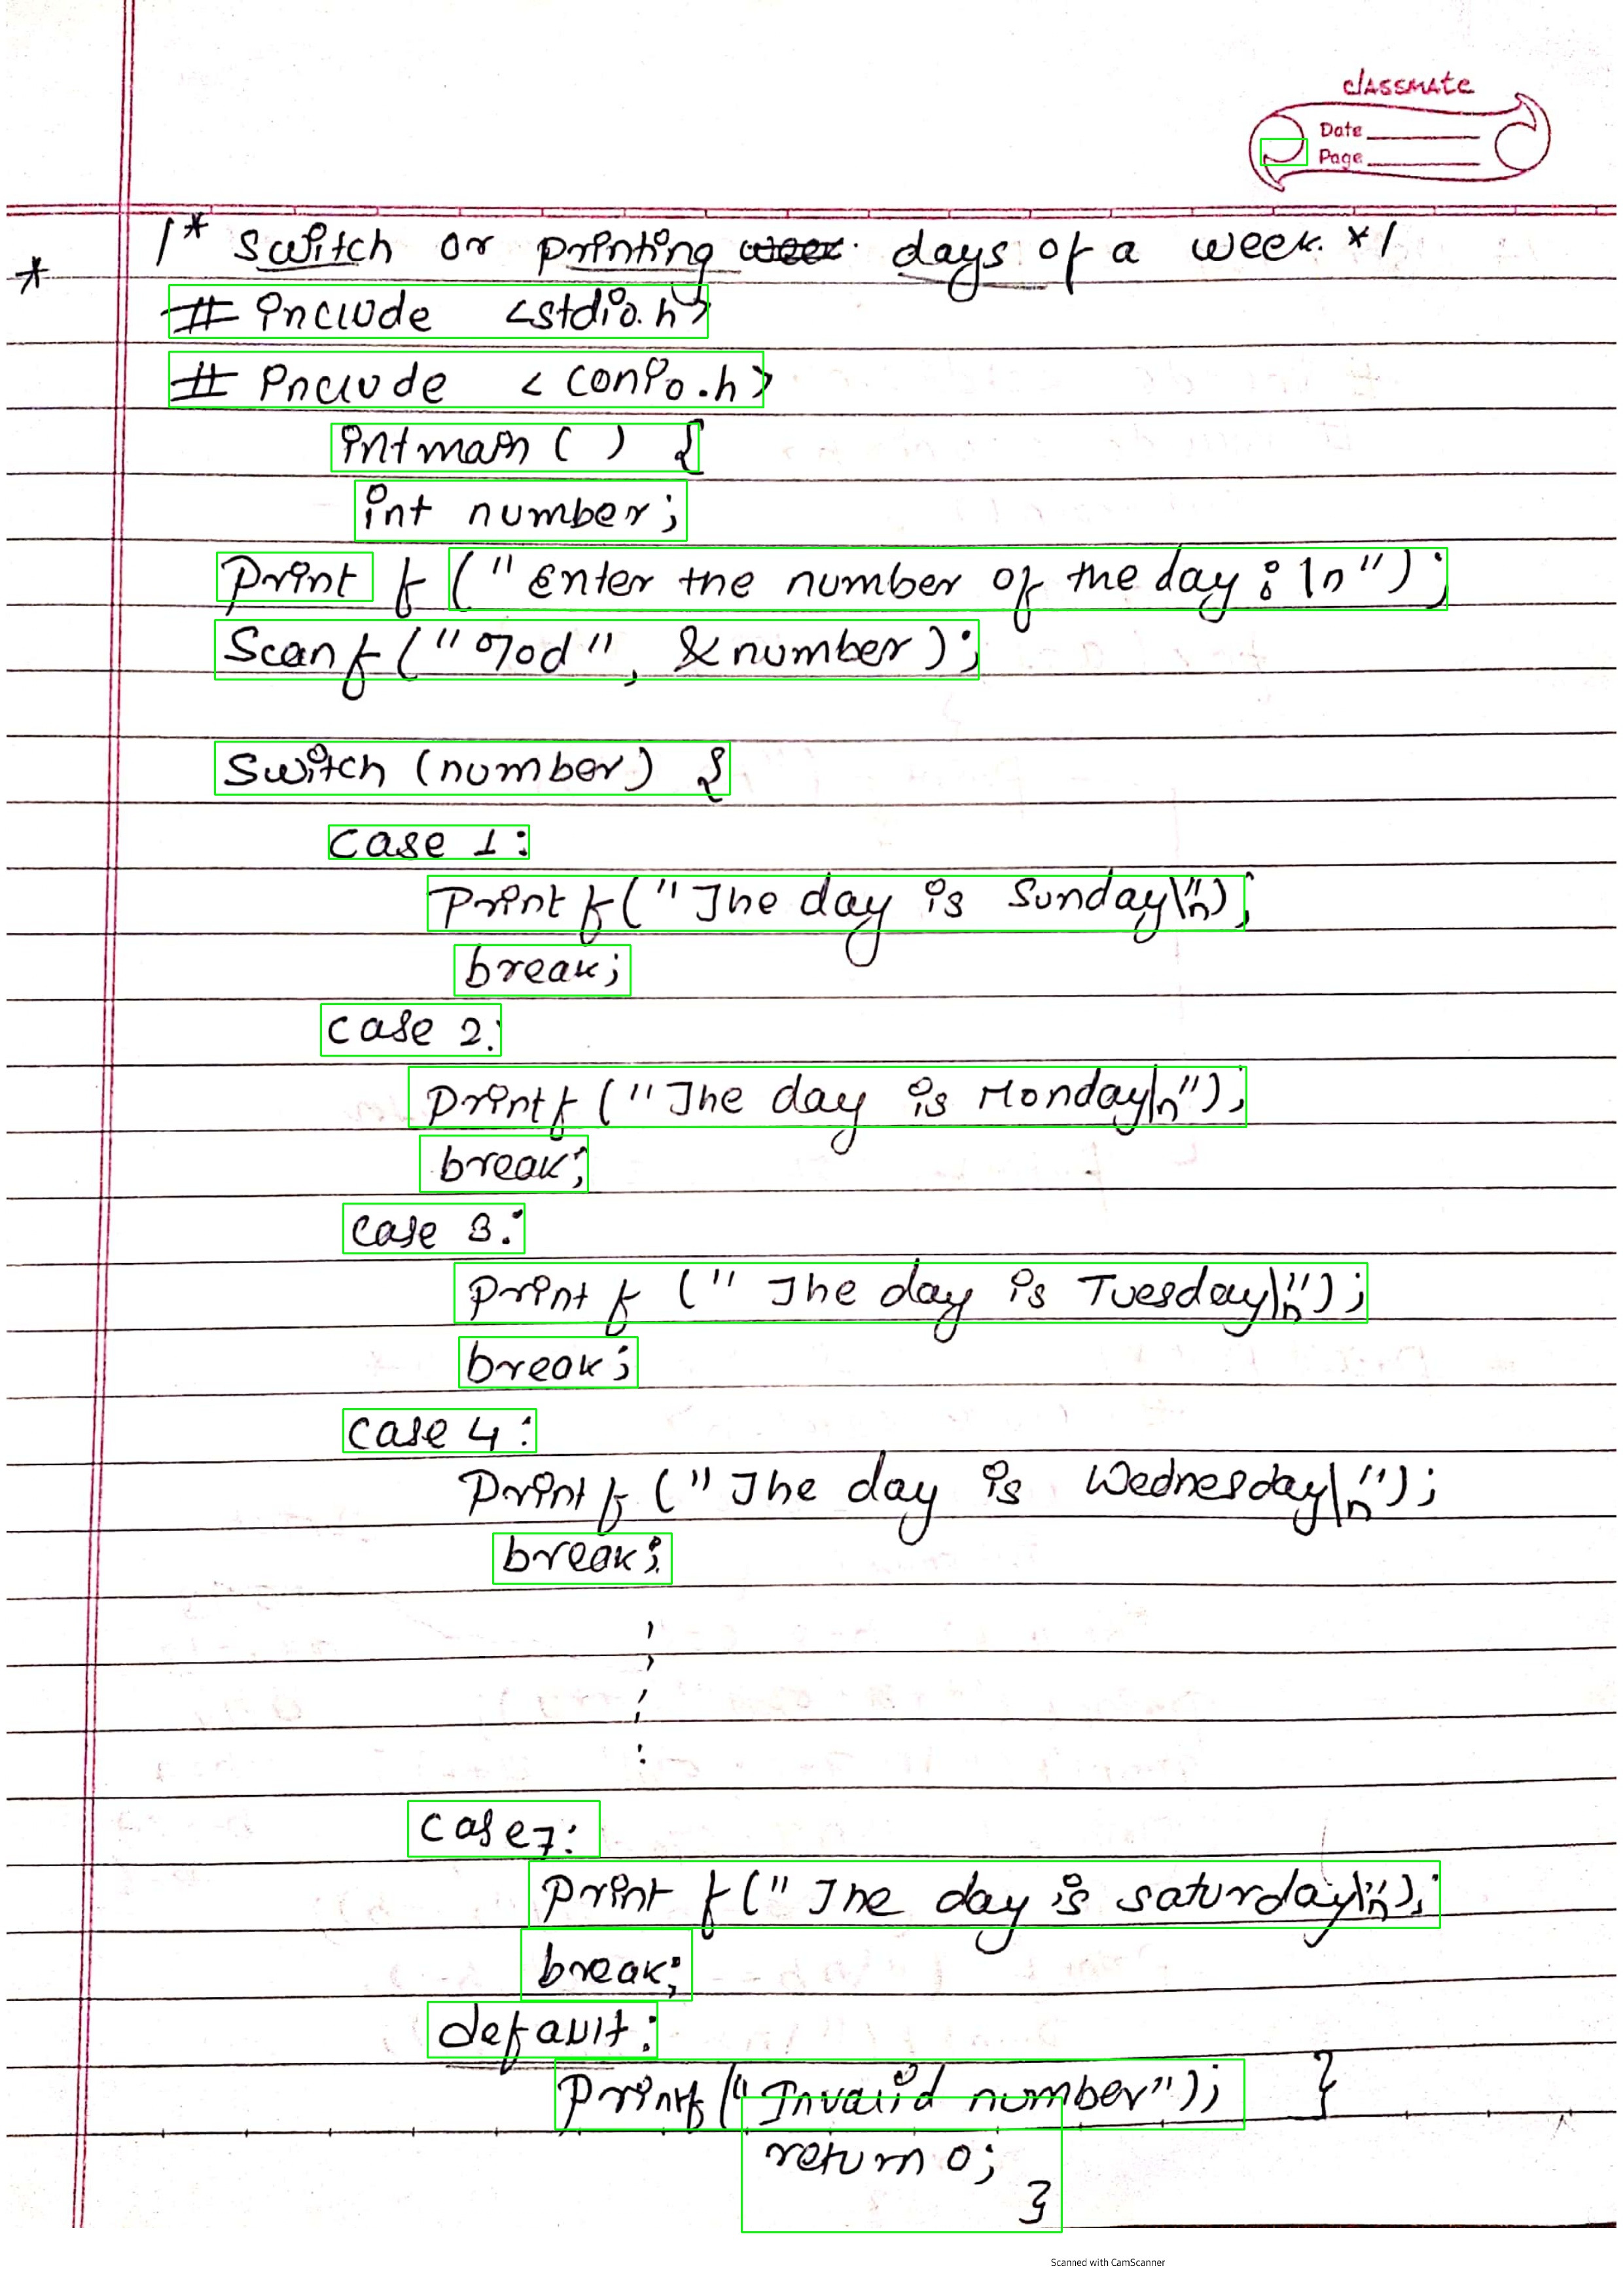 classmate
Date
Page
* /* switch or printing days of a week. */
# include <stdio.h>
# include <conio.h>
int main ( ) {
int number;
Print f (" Enter the number of the day : \n");
Scanf ("%d", &number);
Switch (number) {
case 1:
Print f("The day is Sunday\n");
break;
case 2:
Printf ("The day is Monday\n");
break;
case 3:
Print f (" The day is Tuesday\n");
break;
case 4:
Print f ("The day is Wednesday\n");
break;
case7:
Print f (" The day is saturday\n");
break;
default:
Printf ("Invalid number"); }
return 0;
}
Scanned with CamScanner